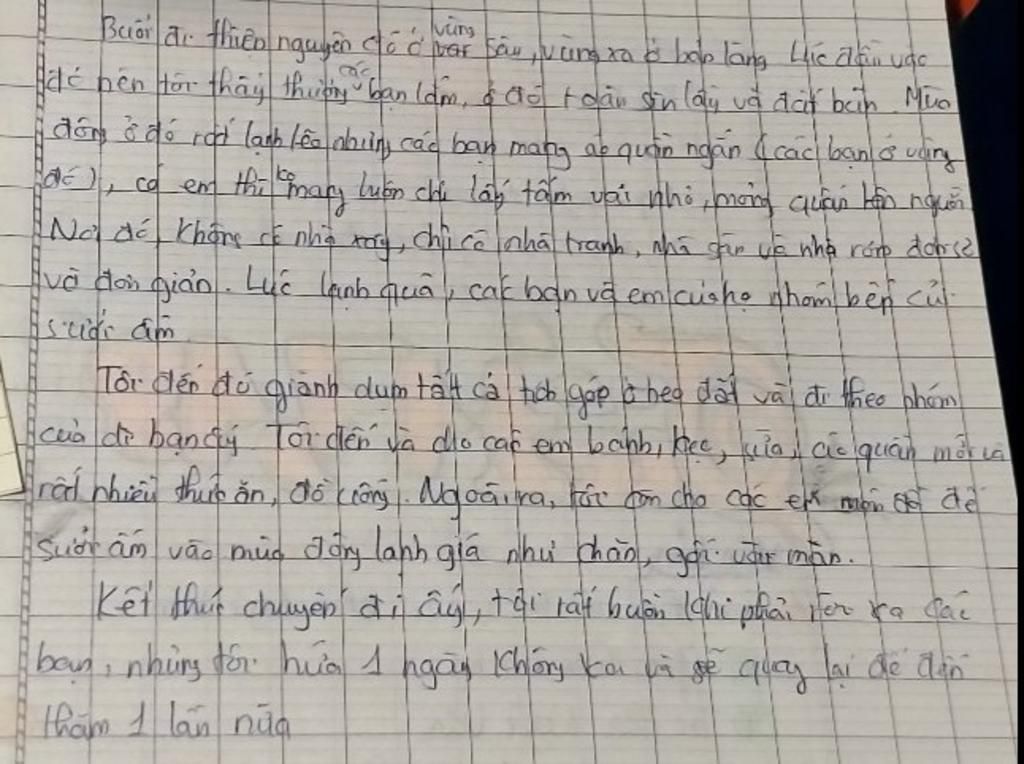 Buổi đi thiện nguyện đó ở vùng sâu, vùng xa ở bản làng
đó nên tôi thấy thương các bạn lắm, ở đó toàn sìn lầy và đất bẩn. Mùa
đông ở đó rất lạnh lẽo nhưng các bạn mang áo quần ngắn (các bạn ở vùng
đó), có em thì ko mang luôn chỉ lấy tấm vải nhỏ, mỏng quấn lên người
Nơi đó, không có nhà, chỉ có nhà tranh, nhà sàn và nhà rơm
và đơn giản. Lúc lạnh quá, các bạn và em của họ nhóm bếp củi
sưởi ấm
Tôi đến đó giành dụm tất cả tích góp ở heo đất và đi theo nhóm
của dì bạn ấy Tôi đến và cho các em bánh, kẹo, sữa, áo quần mới và
rất nhiều thức ăn, đồ uống. Ngoài ra, tôi còn cho các em món để
sưởi ấm vào mùa đông lạnh giá như chăn, gối và mền.
Kết thúc chuyến đi ấy, tôi rất buồn khi phải rời xa các
bạn, nhưng tôi hứa 1 ngày không xa là sẽ quay lại để đến
thăm 1 lần nữa